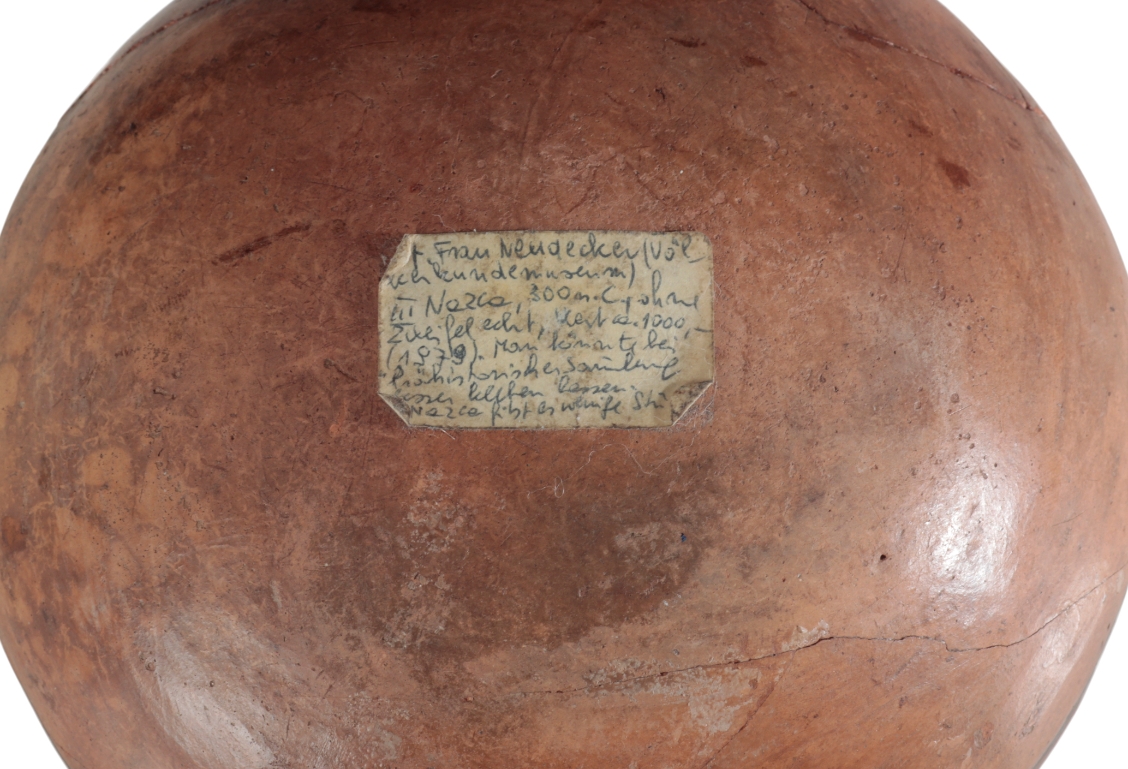 Frau Neudecker (Völ-
kerkundemuseum)
III Nazca, 300 n. C, ohne
Zweifel echt, Wert ca. 1000,-
(1979). Man könnte bei
Prähistorischer Samlung
lassen.
Nazca gibt es wenige